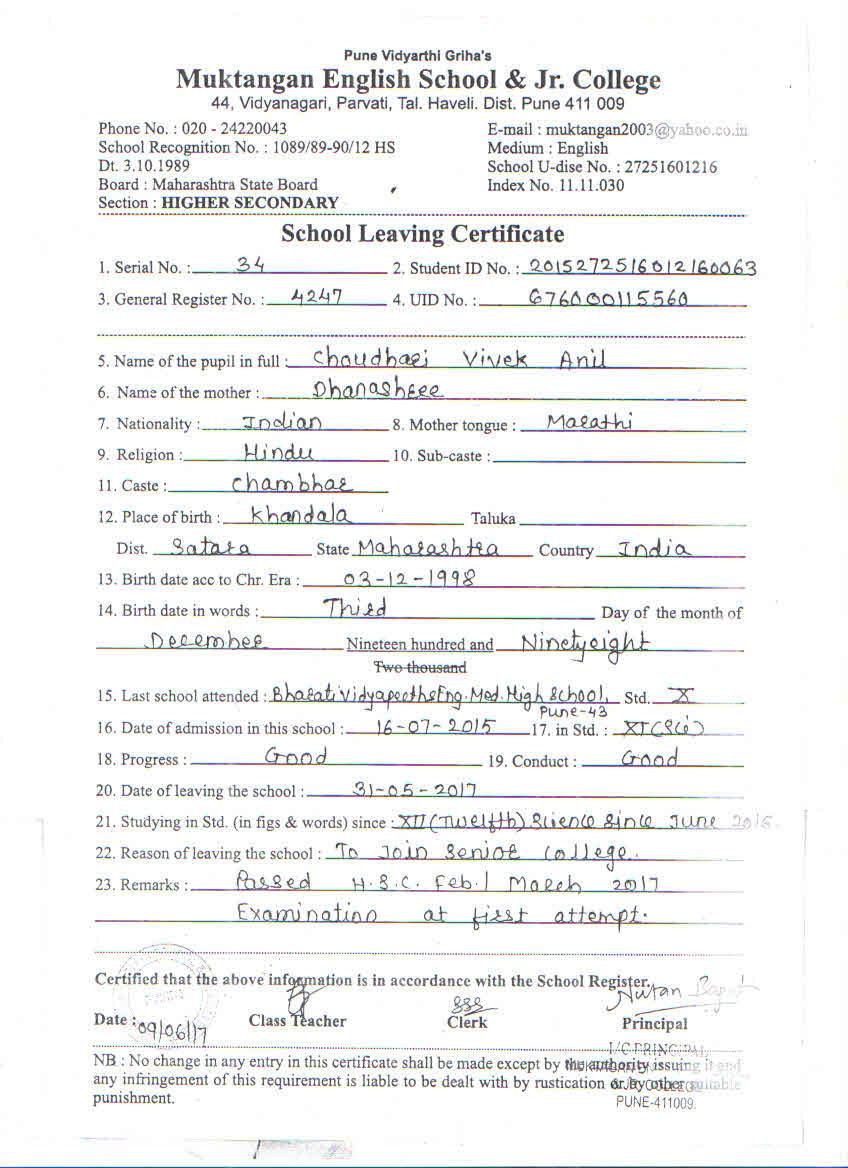 Pune Vidyarthi Griha's
Muktangan English School & Jr. College
44, Vidyanagari, Parvati, Tal. Haveli. Dist. Pune 411 009
Phone No. : 020 - 24220043 E-mail : muktangan2003@yahoo.co.in
School Recognition No. : 1089/89-90/12 HS Medium : English
Dt. 3.10.1989 School U-dise No. : 27251601216
Board : Maharashtra State Board Index No. 11.11.030
Section : HIGHER SECONDARY
School Leaving Certificate
1. Serial No. : 34 2. Student ID No. : 2015272516012160063
3. General Register No. : 4247 4. UID No. : 676000115560
5. Name of the pupil in full : Choudhari Vivek Anil
6. Name of the mother : Dhanashree
7. Nationality : Indian 8. Mother tongue : Marathi
9. Religion : Hindu 10. Sub-caste :
11. Caste : Chambhar
12. Place of birth : Khandala Taluka
Dist. Satara State Maharashtra Country India
13. Birth date acc to Chr. Era : 03-12-1998
14. Birth date in words : Third Day of the month of
December Nineteen hundred and Ninetyeight
Two thousand
15. Last school attended : Bharati Vidyapeeths Eng. Med. High School, Std. X
Pune-43
16. Date of admission in this school : 16-07-2015 17. in Std. : XI (Sci)
18. Progress : Good 19. Conduct : Good
20. Date of leaving the school : 31-05-2017
21. Studying in Std. (in figs & words) since : XII (Twelfth) Science Since June 2016.
22. Reason of leaving the school : To Join Senior College.
23. Remarks : Passed H.S.C. Feb./ March 2017
Examination at first attempt.
Certified that the above information is in accordance with the School Register.
Nutan Bapat
Date : 09/06/17 Class Teacher Clerk Principal
I/C PRINCIPAL
NB : No change in any entry in this certificate shall be made except by the authority issuing it and
any infringement of this requirement is liable to be dealt with by rustication or by other suitable
punishment. PUNE-411009.